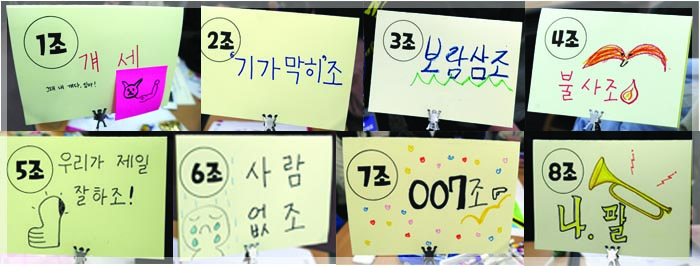 1조
걔 세
그래 내 개다, 임마!
2조
"기가막히"조
3조
보람삼조
4조
불사조
5조
우리가 제일
잘하조!
6조
사람
없조
7조
007조
8조
나.팔